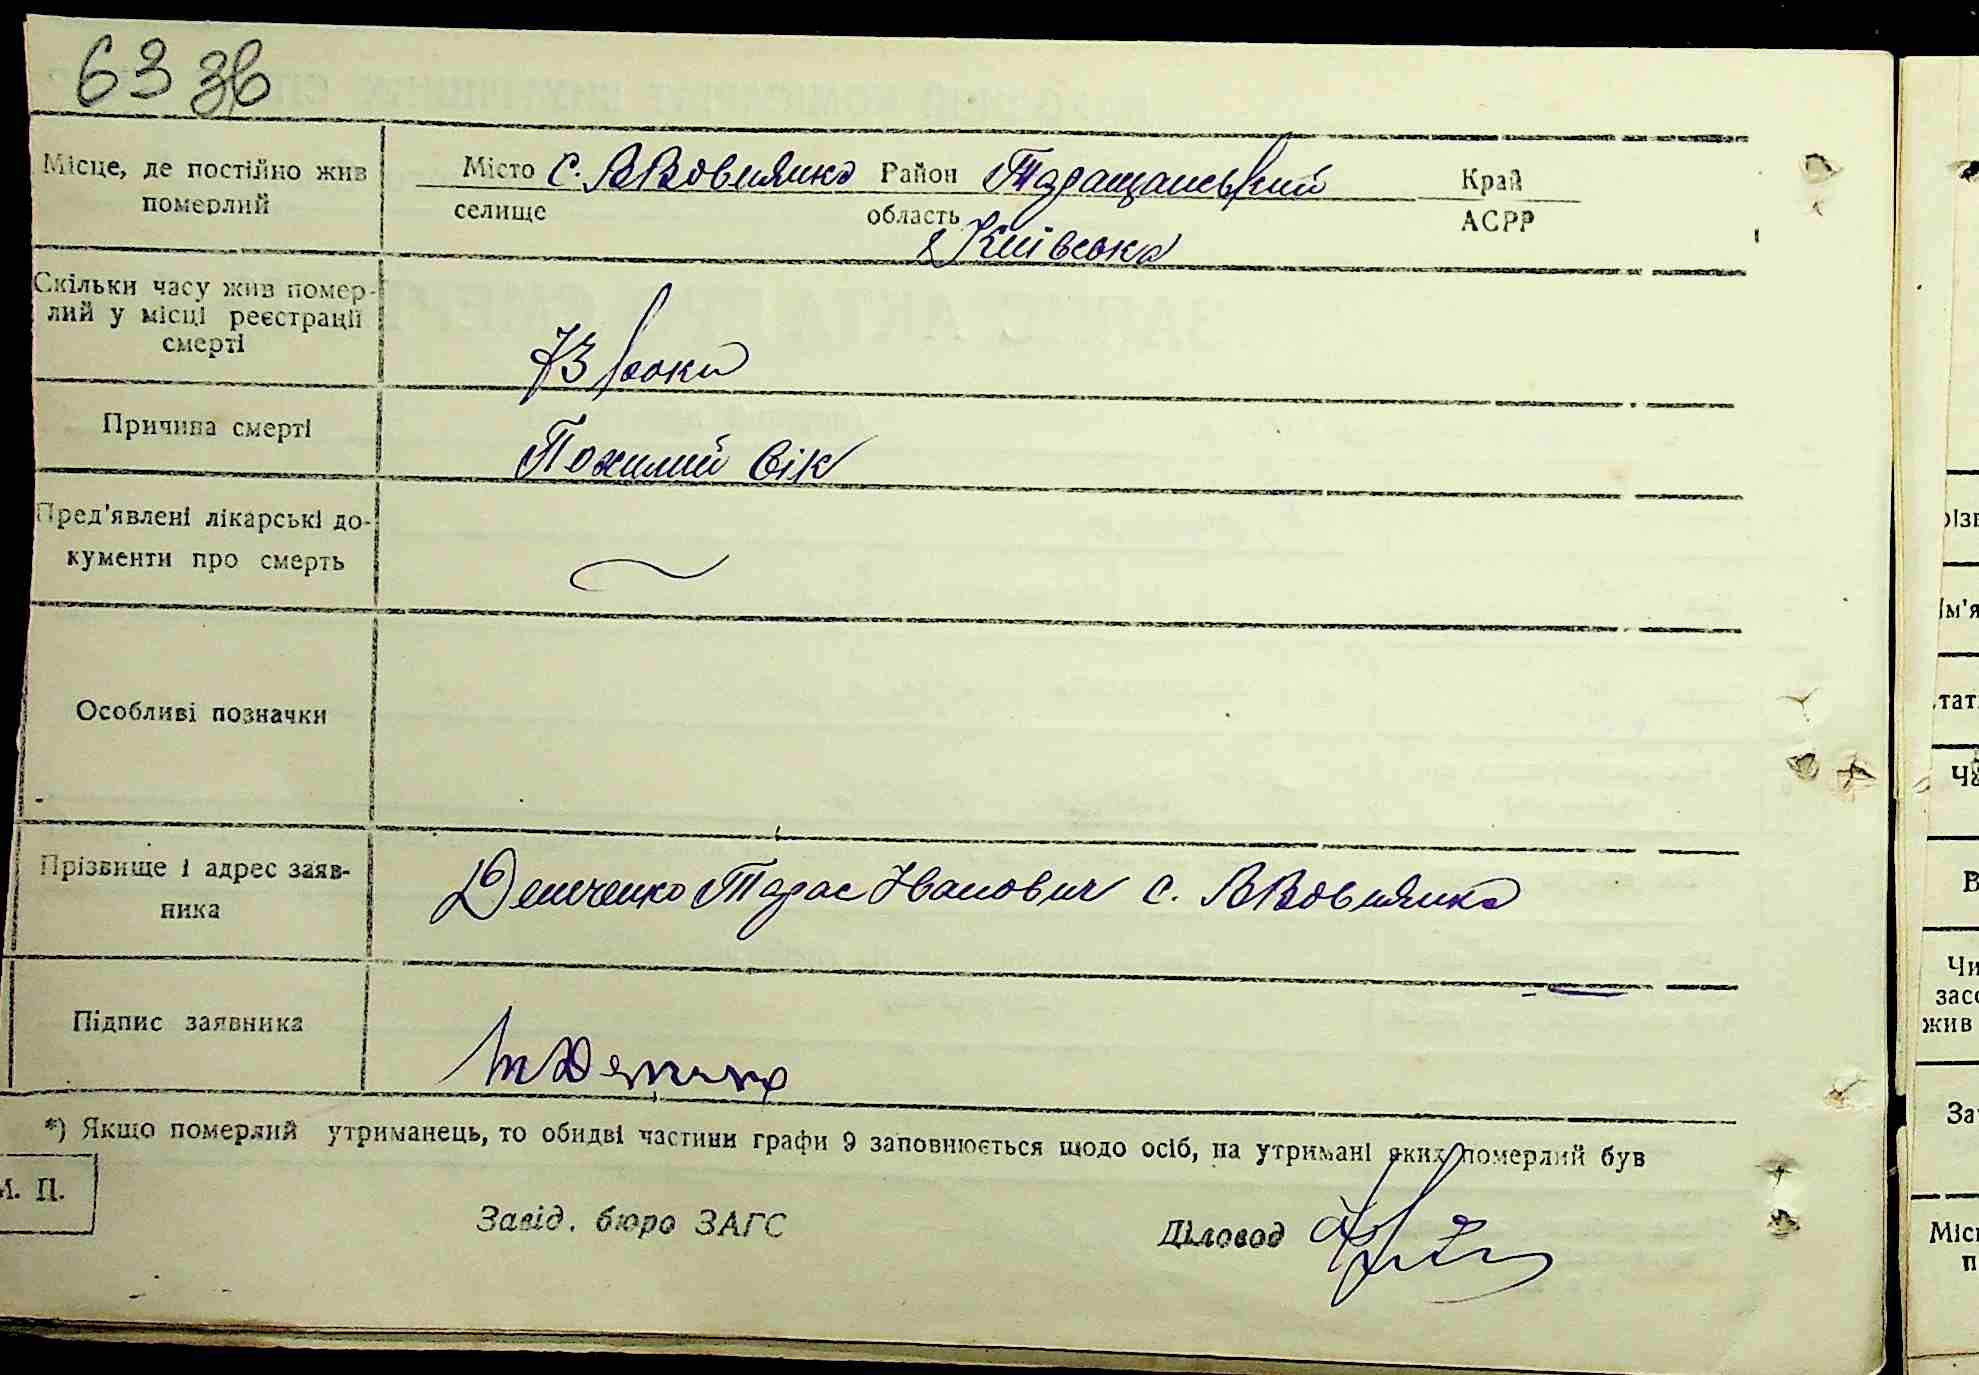 63 зв
Місце, де постійно жив
померлий
Місто с. ВВовнянка Район Таращанський Край
селище область АСРР
Київська
Скільки часу жив помер-
лий у місці реєстрації
смерті
73 роки
Причина смерті
Похилий вік
Пред'явлені лікарські до-
кументи про смерть
Особливі позначки
Прізвище і адрес заяв-
ника
Демченко Тарас Іванович с. ВВовнянка
Підпис заявника
*) Якщо померлий утриманець, то обидві частини графи 9 заповнюється щодо осіб, на утримані яких померлий був
М. П.
Завід. бюро ЗАГС
Діловод